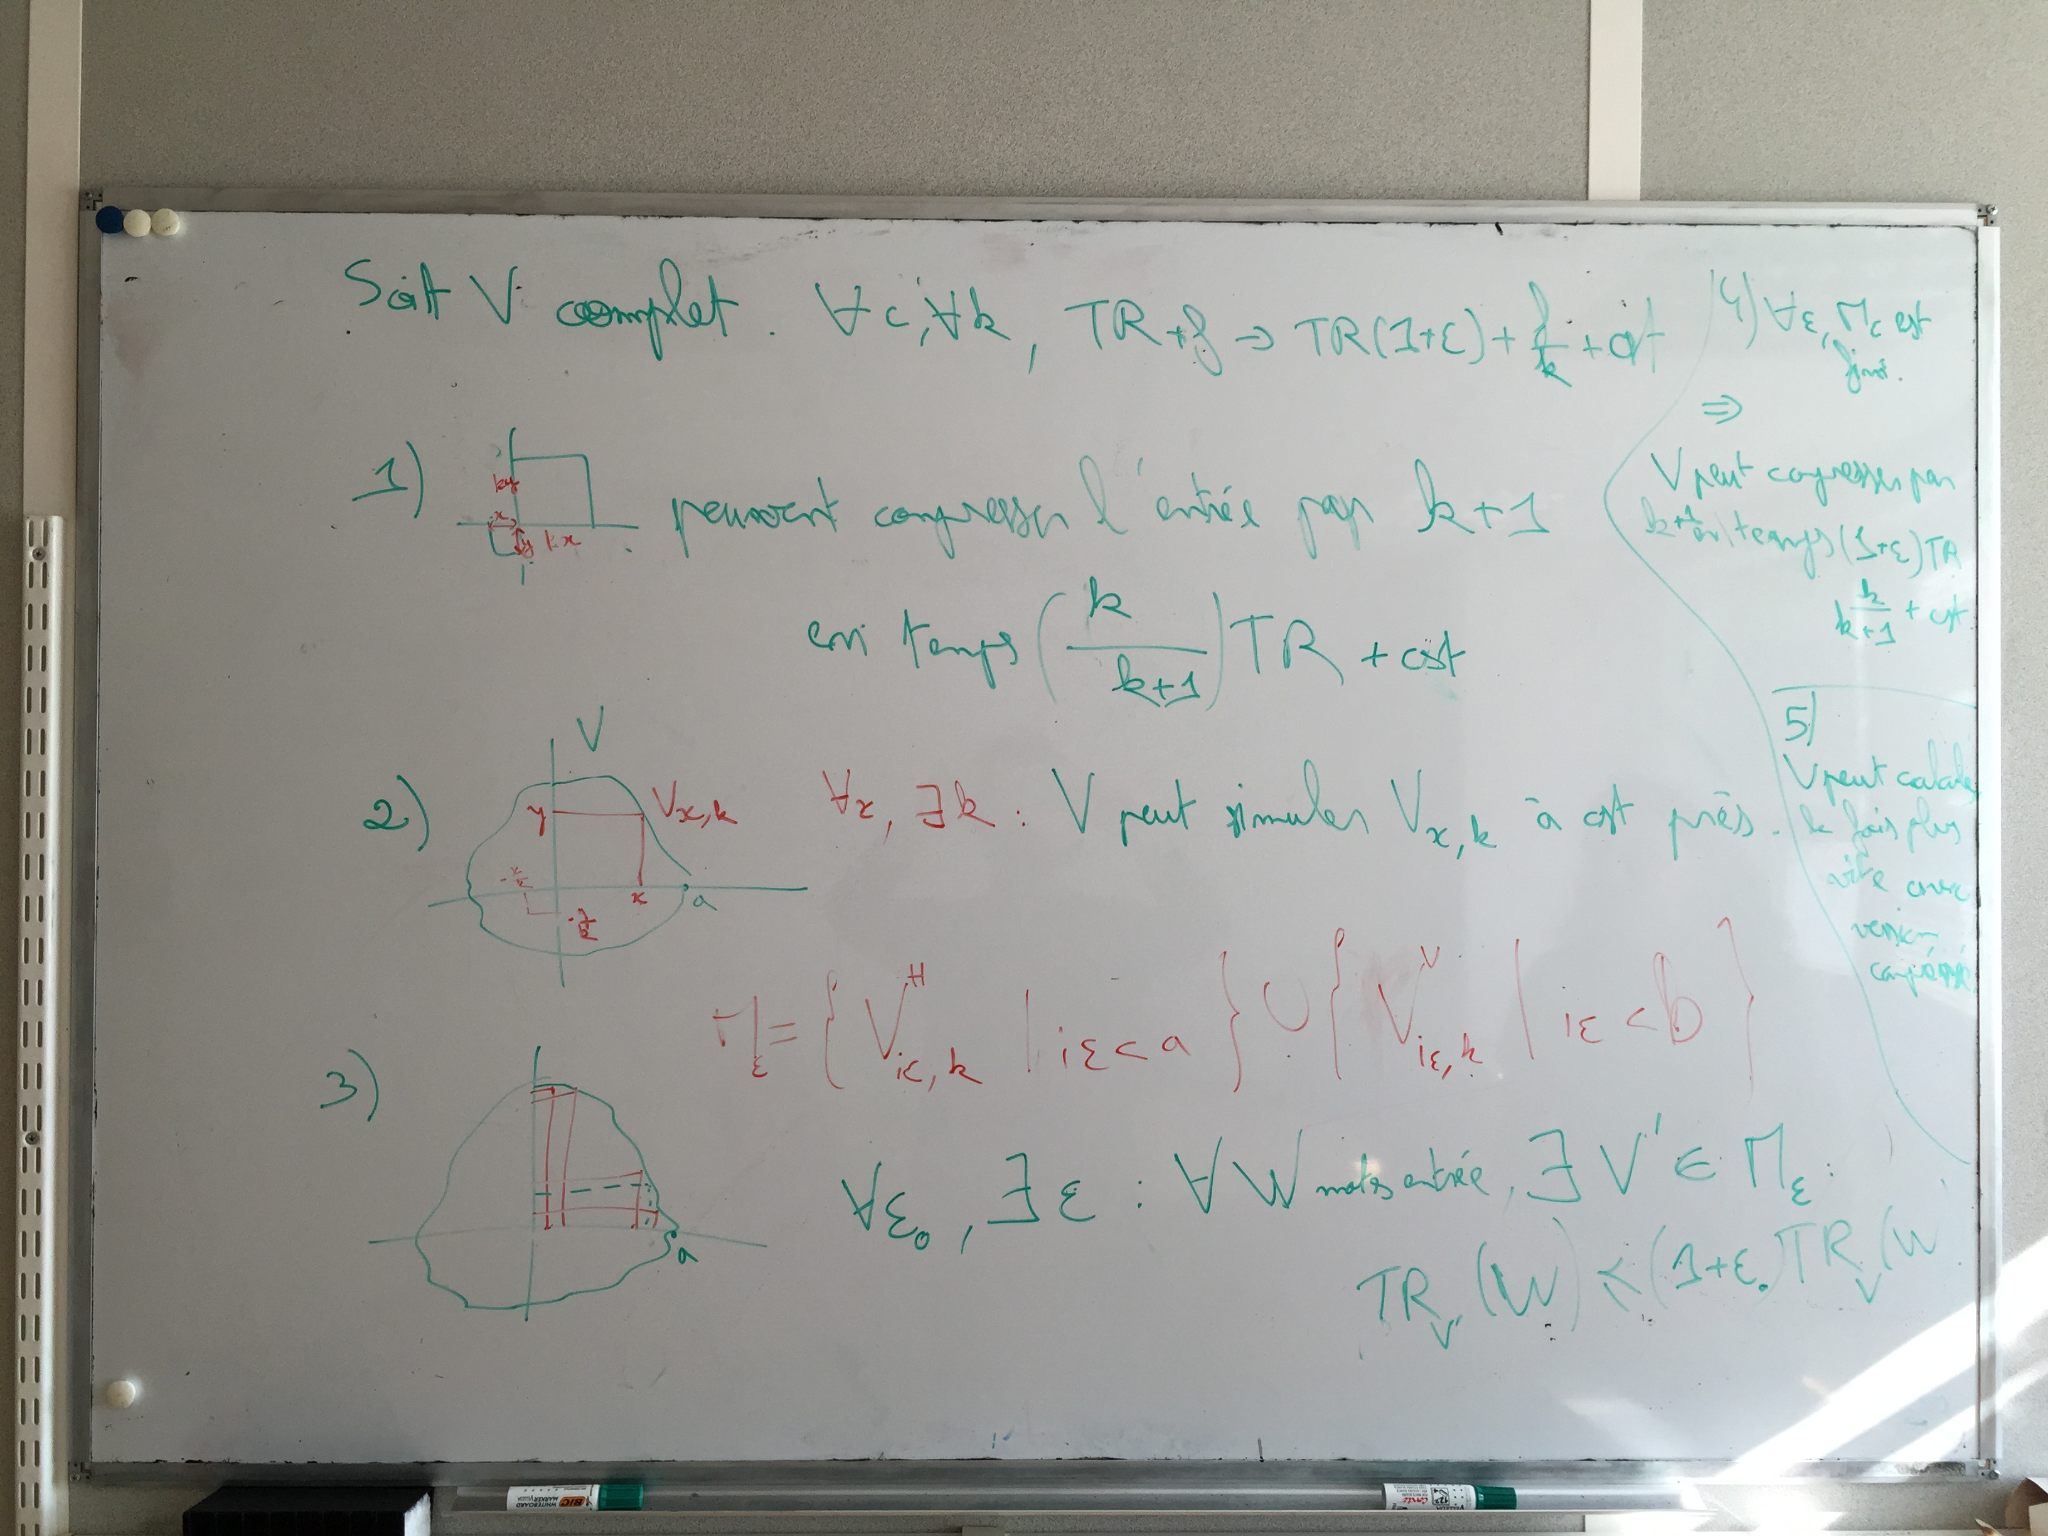 Soit V complet. ∀ε, ∀k, TR + f ⇒ TR(1+ε) + f/k + cst
1)
ky
x
y
kx
peuvent compresser l'entrée par k+1
en temps (k/(k+1)) TR + cst
2)
V
y
V_{x,k}
-x/k
x
a
-y/k
∀x, ∃k : V peut simuler V_{x,k} à cst près.
M_ε = { V^H_{iε,k} | iε < a } ∪ { V^V_{iε,k} | iε < b }
3)
a
∀ε₀, ∃ε : ∀W mot entrée, ∃V' ∈ M_ε :
TR_{V'}(W) ≤ (1+ε₀) TR_V(W
4) ∀ε, M_ε est
fini.
⇒
V peut compresser par
k+1 en temps (1+ε)TR
k/(k+1) + cst
5)
V peut calculer
k fois plus
vite avec
version
compressé
BIC
WHITEBOARD
MARKER